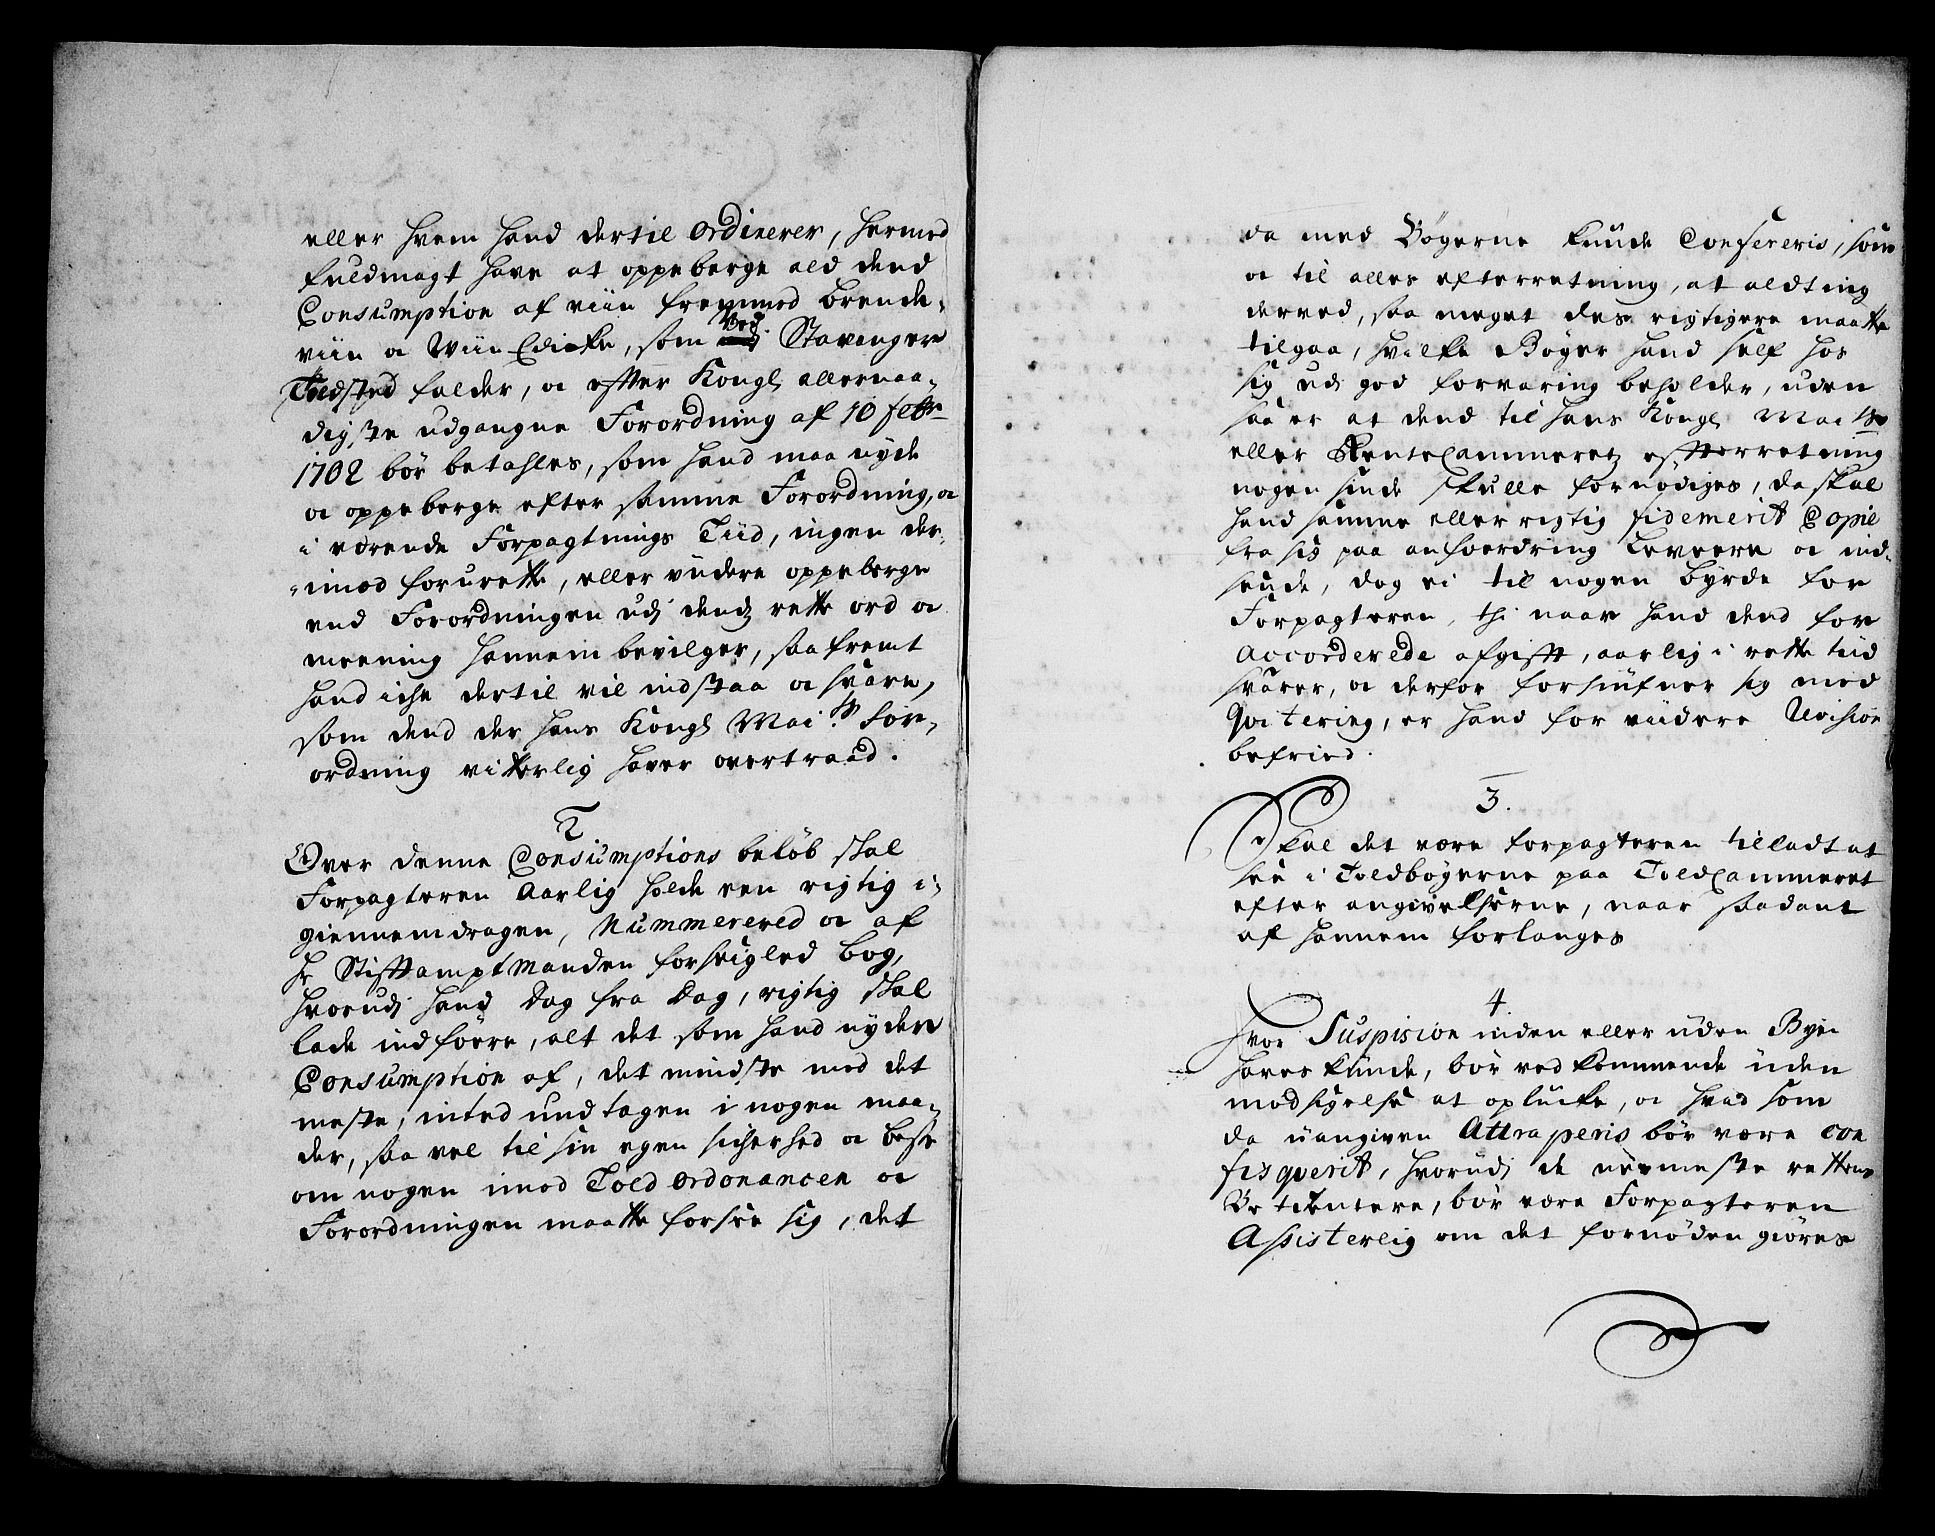 eller hvem hand dertil ordinerer, hermed
fuldmagt have at oppeberge ald dend
Consumption af viin fremmed brende-
viin oc Wiin Edicke, som ved Stavanger
Toldsted falder, oc efter Kongl allernaa-
digste udgangne Forordning af 10 febr
1702 bör betahles, som hand maa nyde
oc oppeberge efter samme Forordning, oc
i værende Forpagtnings Tiid, ingen der-
imod forurette, eller viidere oppeberge
end Forordningen udi dend rette ord oc
meening hannem bevilger, saafremt
hand iche dertil vil indstaa oc svare,
som dend der hans Kongl Mai.ts for-
ordning vitterlig haver overtraad.
2
Over denne Consumptions beløb skal
Forpagteren Aarlig holde een rigtig i-
giennemdragen, Nummerered oc af
Hr Stifftamptmanden forseigled bog,
hvorudi hand Dag fra Dag, rigtig skal
lade indföere, alt det som hand nyder
Consumption af, det mindste med det
meste, inted undtagen i nogen maa-
der, saa vel til sin egen sicherhed oc besse
om nogen imod Told ordonancen oc
Forordningen maatte forsee sig, det
da med Bøgerne kunde Confereris, som
oc til alles efterretning, at aldting
derved, saa meget des rigtigere maatte
tilgaa, hvilke Böger hand self hos
sig udi god forvaring beholder, uden
saa er at dend til hans Kongl Maits
eller RenteCammeret efterretning
nogen sinde skulle fornødiges, da skal
hand samme eller rigtig fidemerit Copie
fra sig paa anfoerdring levere oc ind-
sende, dog ei til nogen byrde for
Forpagteren, thi naar hand dend for
Accorderede afgifft, aarlig i rette tiid
svarer, oc derfor forsiufner sig med
Qvitering, er hand for viidere Revision
befried.
3.
Skal det være forpagteren tilladt at
see i Toldbøgerne paa ToldCammeret
efter angivelserne, naar saadant
af hannem forlanges
4
Hvor Suspision inden eller uden Byen
haves kunde, bör vedkommende uden
modsigelse at oplucke, oc hvad som
da uangiven Attraperis bör være con
fisqverit, hvorudi de nermeste rettens
Betientere, bör være Forpagteren
Assisterlig om det fornøden giöres